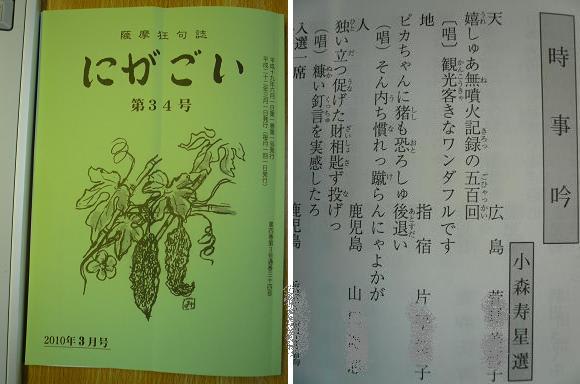 薩摩狂句誌
にがごい
第34号
2010年3月号
時事吟
小森寿星選
天 広島
嬉しゅあ無噴火記録の五百回
（唱）観光客きなワンダフルです
地 指宿 片
ピカちゃんに猪も恐ろしゅ後退い
（唱）そん内ち慣れっ蹴らんにゃよかが
人 鹿児島 山
独い立つ促げた財相匙ず投げっ
（唱）糠い釘言を実感したろ
入選一席 鹿児島